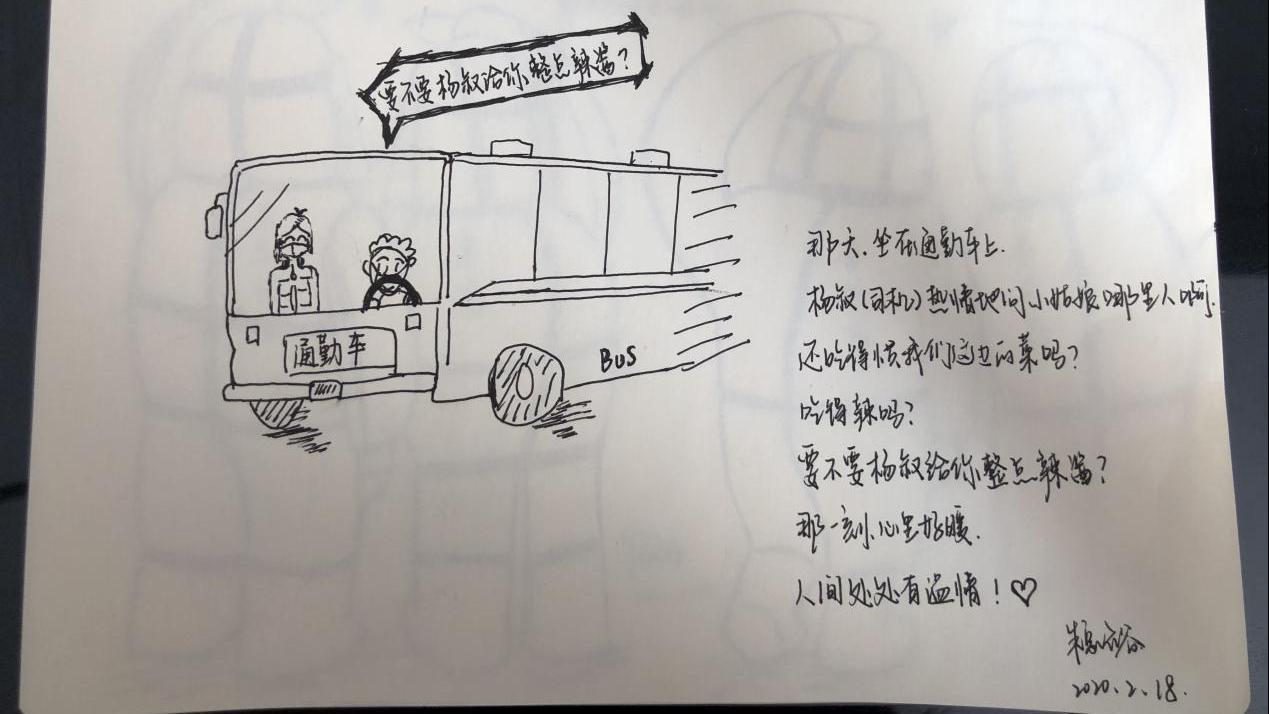 要不要杨叔给你整点辣酱？
通勤车
BUS
那天，坐在通勤车上.
杨叔（司机）热情地问小姑娘哪里人啊.
还吃得惯我们这边的菜吗？
吃得辣吗？
要不要杨叔给你整点辣酱？
那一刻，心里好暖.
人间处处有温情！♡
2020.2.18.